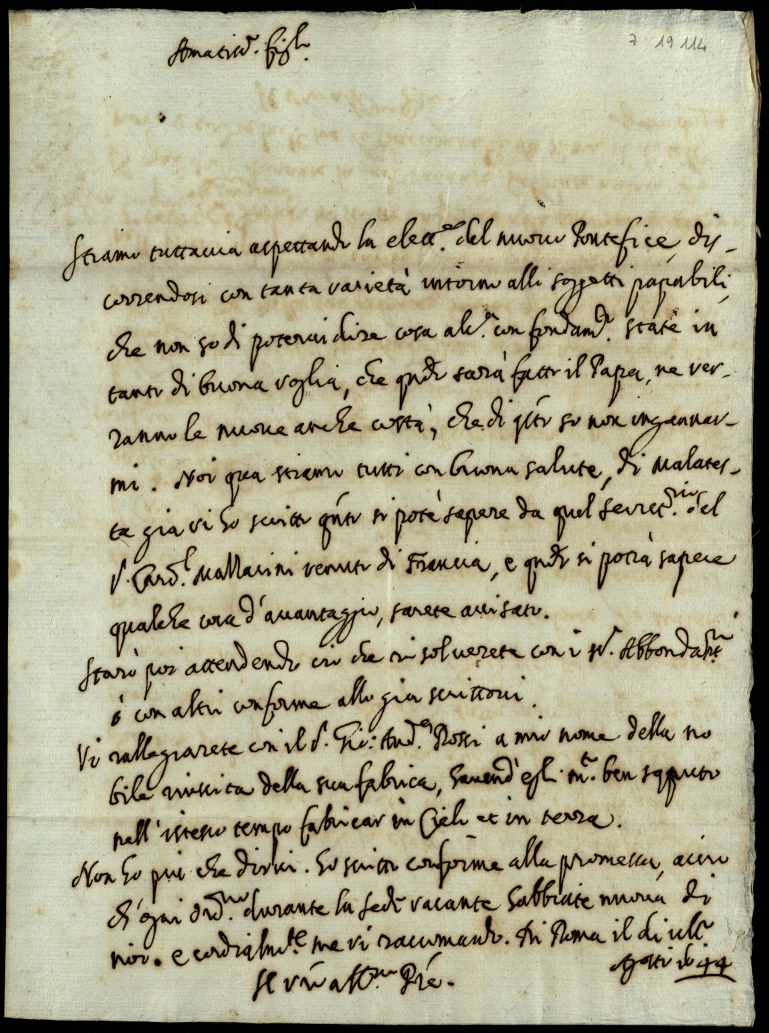 7 19 114
Amatiss.º figl.
Stiamo tuttavia aspettando la elett.ne del nuovo Pontefice, dis-
correndosi con tanta varietà intorno alli soggetti papabili,
che non so di potervi dire cosa alc.a con fondam.to state in
tanto di buona voglia, che qndo sarà fatto il Papa, ne ver-
ranno le nuove anche costà, che di qsto so non ingannar-
mi. Noi qua stiamo tutti con buona salute, di Malates-
ta già vi ho scritto qnto si potè sapere da quel Secret.rio del
S. Card.l Mazzarini venuto di Francia, e qndo si potrà sapere
qualche cosa d'avantaggio, sarete avisato.
Starò poi attendendo ciò che risolverete con i SS.ri Abbondanti
ò con altri conforme allo già scrittovi.
Vi rallegrarete con il S. Gio: And.a Rossi a mio nome della no
bile riuscita della sua fabrica, havend'egli m.to ben saputo
nell'istesso tempo fabricar in Cielo et in terra.
Non ho più che dirvi. ho scritto conforme alla promessa, acciò
ch'ogni ord.rio durante la sede vacante habbiate nuova di
noi. e cordialm.te me vi raccomando. Di Roma il di ult.o
Agosto 1644
Il vro aff.mo Pre.